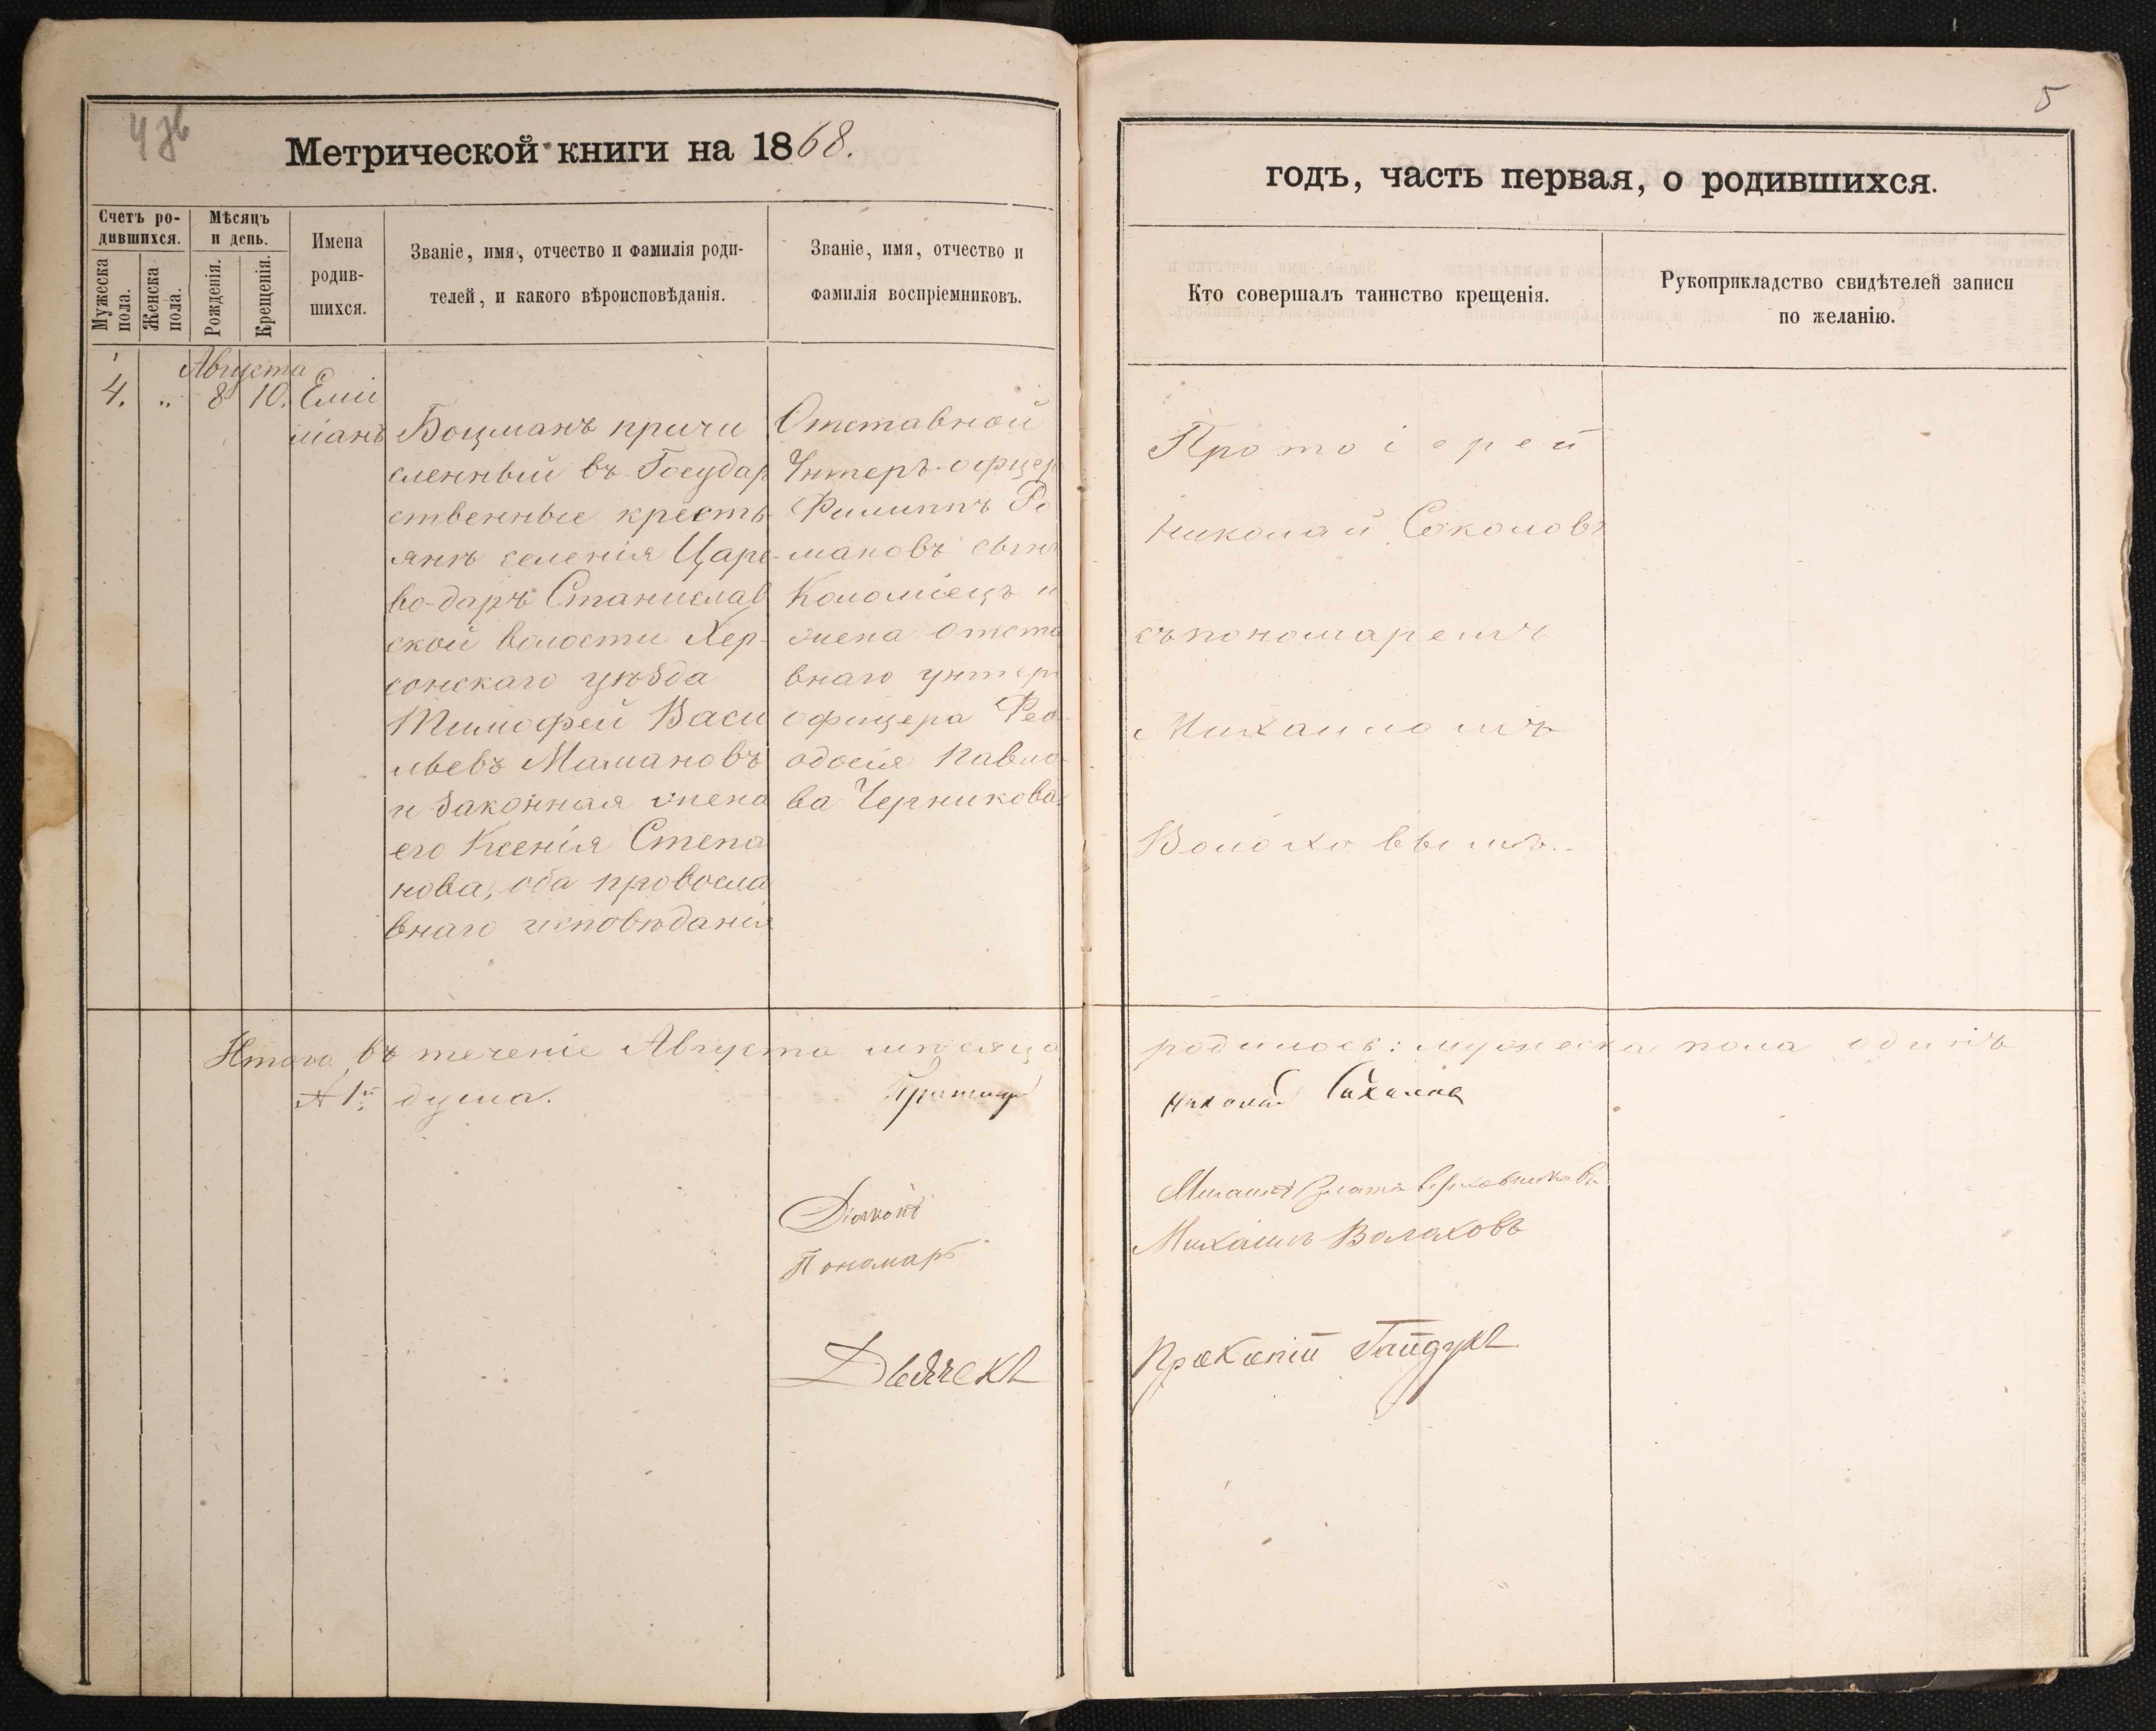 Метрической книги на 1868.
Счетъ ро-
дившихся.
Мужеска
пола.
Женска
пола.
Мѣсяцъ
и день.
Рожденія.
Крещенія.
Имена
родив-
шихся.
Званіе, имя, отчество и фамилія роди-
телей, и какого вѣроисповѣданія.
Званіе, имя, отчество и
фамилія воспріемниковъ.
Августа
4. „ 8 10. Емі
ліанъ
Боцманъ причи
сленный въ Государ
ственные кресть
янъ селенія Царе-
во-даръ Станислав
ской волости Хер-
сонскаго уѣзда
Тимофей Васи
льевъ Мамановъ
и законная жена
его Ксенія Степа
нова, оба провосла
внаго исповѣданія
Отставной
Унтеръ-офцер
Филиппъ Ро
мановъ сынъ
Коломіецъ и
жена отста
внаго унтеръ
офицера Фео-
досія Павло-
ва Черникова.
Итого въ теченіе Августа мѣсяца
1 душа.
Діаконъ
Пономарь
Дьячекъ
5
годъ, часть первая, о родившихся.
Кто совершалъ таинство крещенія.
Рукоприкладство свидѣтелей записи
по желанію.
Протоіерей
Николай Соколовъ
съ пономаремъ
Михаиломъ
Волоховымъ..
родилось: мужеска пола одинъ
Николай
Михаилъ
Михаилъ Волоховъ
Прокопій Гайдукъ